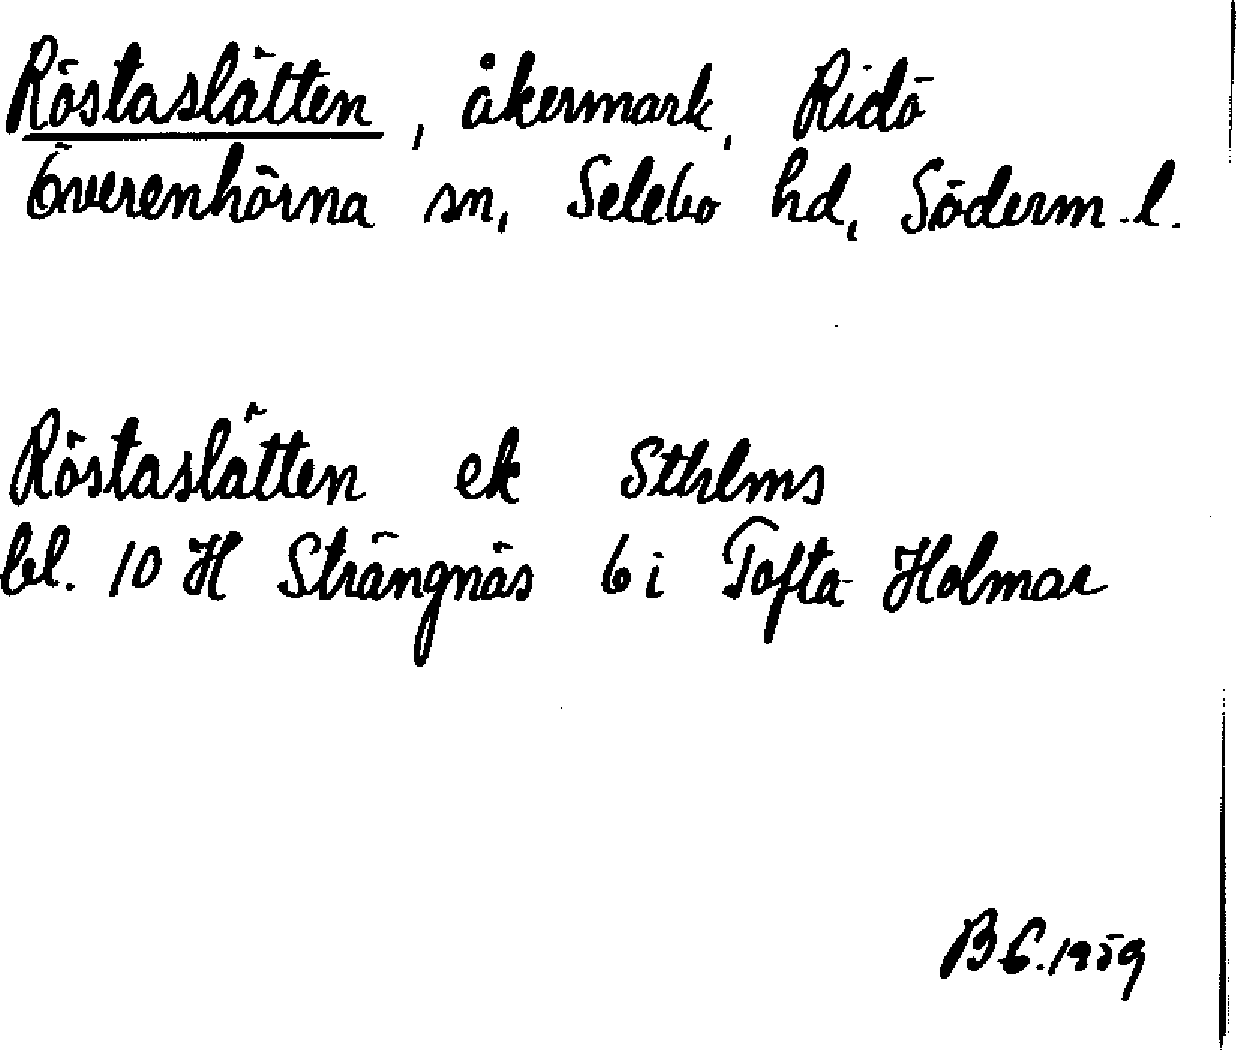 Röstaslätten, åkermark, Ridö
Överenhörna sn, Selebo hd, Söderm.l.
Röstaslätten ek Sthlms
bl. 10 H Strängnäs 6 i Tofta Holmar
B G. 1959